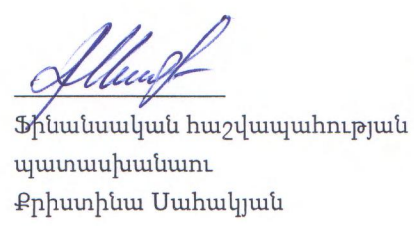 Ֆինանսական հաշվապահության
պատասխանատու
Քրիստինա Սահակյան